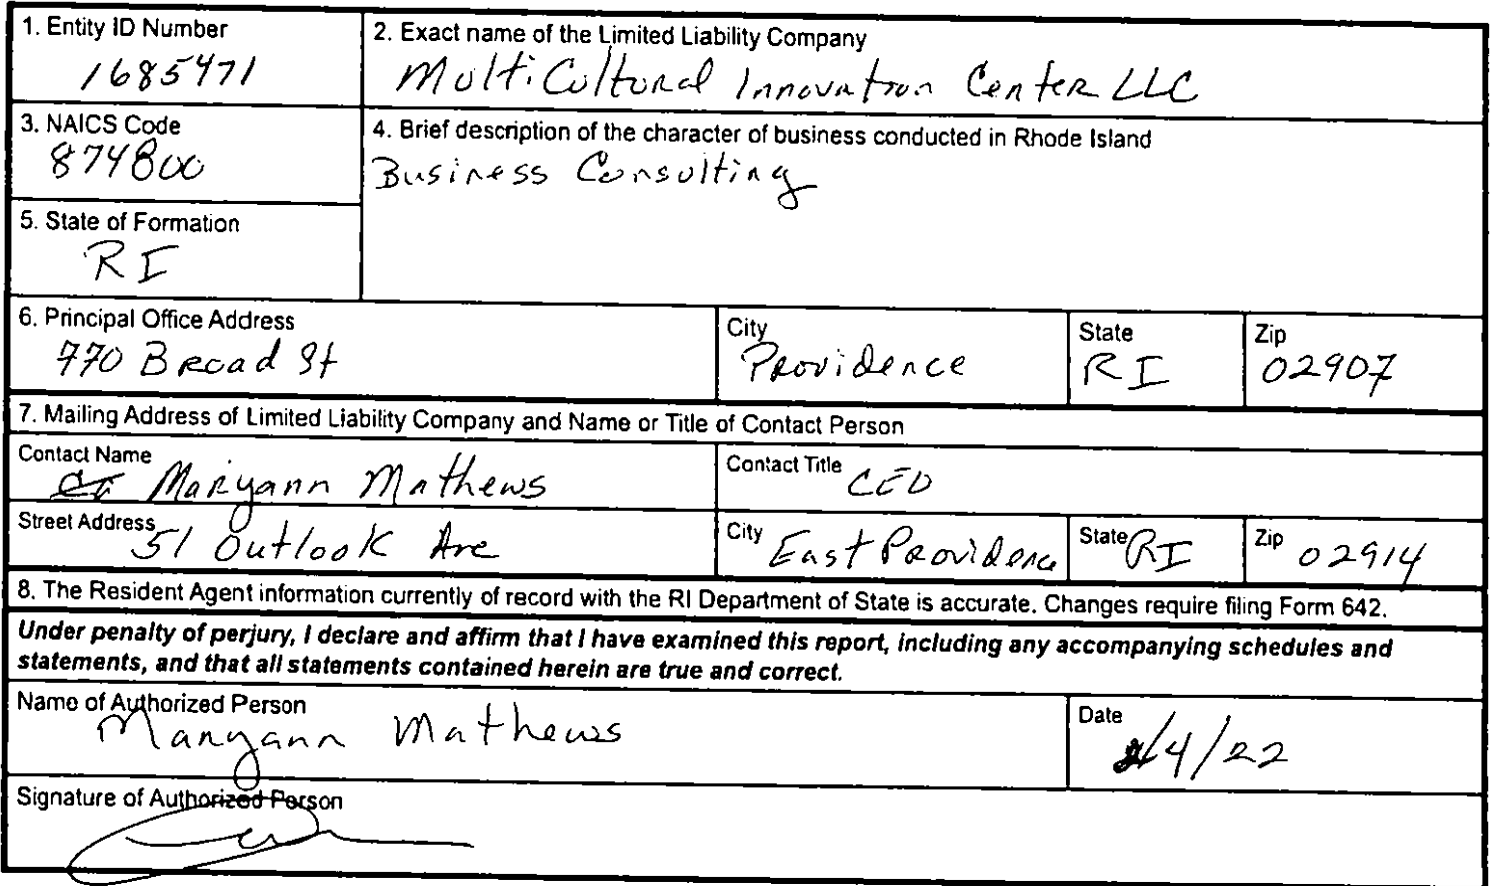 1. Entity ID Number
1685471
2. Exact name of the Limited Liability Company
MultiCultural Innovation Center LLC
3. NAICS Code
874800
4. Brief description of the character of business conducted in Rhode Island
Business Consulting
5. State of Formation
RI
6. Principal Office Address
770 Broad St
City
Providence
State
RI
Zip
02907
7. Mailing Address of Limited Liability Company and Name or Title of Contact Person
Contact Name
Maryann Mathews
Contact Title
CEO
Street Address
51 Outlook Ave
City
East Providence
State
RI
Zip
02914
8. The Resident Agent information currently of record with the RI Department of State is accurate. Changes require filing Form 642.
Under penalty of perjury, I declare and affirm that I have examined this report, including any accompanying schedules and
statements, and that all statements contained herein are true and correct.
Name of Authorized Person
Maryann Mathews
Date
/4/22
Signature of Authorized Person